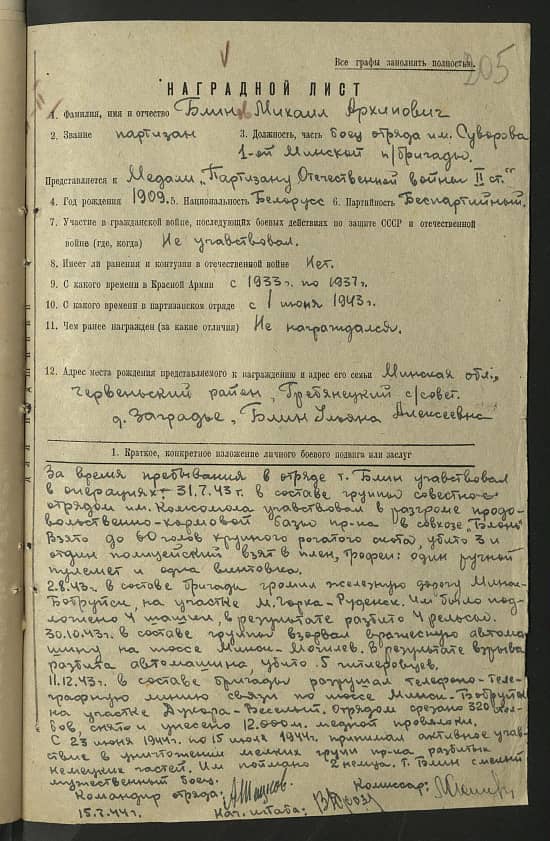 Все графы заполнять полностью.
205
НАГРАДНОЙ ЛИСТ
1. Фамилия, имя и отчество Блин Михаил Архипович
2. Звание партизан 3. Должность, часть боец отряда им. Суворова
1-ой Минской п/бригады.
Представляется к Медали „Партизану Отечественной войны II ст."
4. Год рождения 1909. 5. Национальность Белорусс 6. Партийность Беспартийный.
7. Участие в гражданской войне, последующих боевых действиях по защите СССР и отечественной
войне (где, когда) Не учавствовал.
8. Имеет ли ранения и контузии в отечественной войне Нет.
9. С какого времени в Красной Армии с 1933 г. по 1937 г.
10. С какого времени в партизанском отряде с 1 июня 1943 г.
11. Чем ранее награжден (за какие отличия) Не награждался.
12. Адрес места рождения представляемого к награждению и адрес его семьи Минская обл.,
Червеньский район, Гребянецкий с/совет.
д. Заградье, Блин Ульяна Алексеевна
1. Краткое, конкретное изложение личного боевого подвига или заслуг
За время пребывания в отряде т. Блин учавствовал
в операциях: 31.7.43 г. в составе группы совестно с
отрядом им. Комсомола учавствовал в разгроме продо-
вольственно-кормовой базы пр-ка в совхозе "Блонь"
Взято до 60 голов крупного рогатого скота, убито 3 и
один полицейский взят в плен, трофеи: один ручной
пулемет и одна винтовка.
2.8.43 г. в составе бригады громил железную дорогу Минск-
Бобруйск, на участке М. Горка-Руденск. Им было под-
ложено 4 шашки, в результате разбито 4 рельсы.
30.10.43 г. в составе группы взорвал вражескую автома-
шину на шоссе Минск-Могилев. В результате взрыва
разбита автомашина, убито 5 гитлеровцев.
11.12.43 г. в составе бригады разрушал телефоно-теле-
графную линию связи по шоссе Минск-Бобруйск
на участке Веселый. Отрядом срезано 320 стол-
бов, снято и унесено 12.000 м. медной проволоки.
С 23 июня 1944 г. по 15 июля 1944 г. принимал активное учав-
ствие в уничтожении мелких групп пр-ка разбитых
немецких частей. Им поймано 2 немца. т. Блин смелый
мужественный боец.
Командир отряда: Комиссар:
15.7.44 г. Нач. штаба: